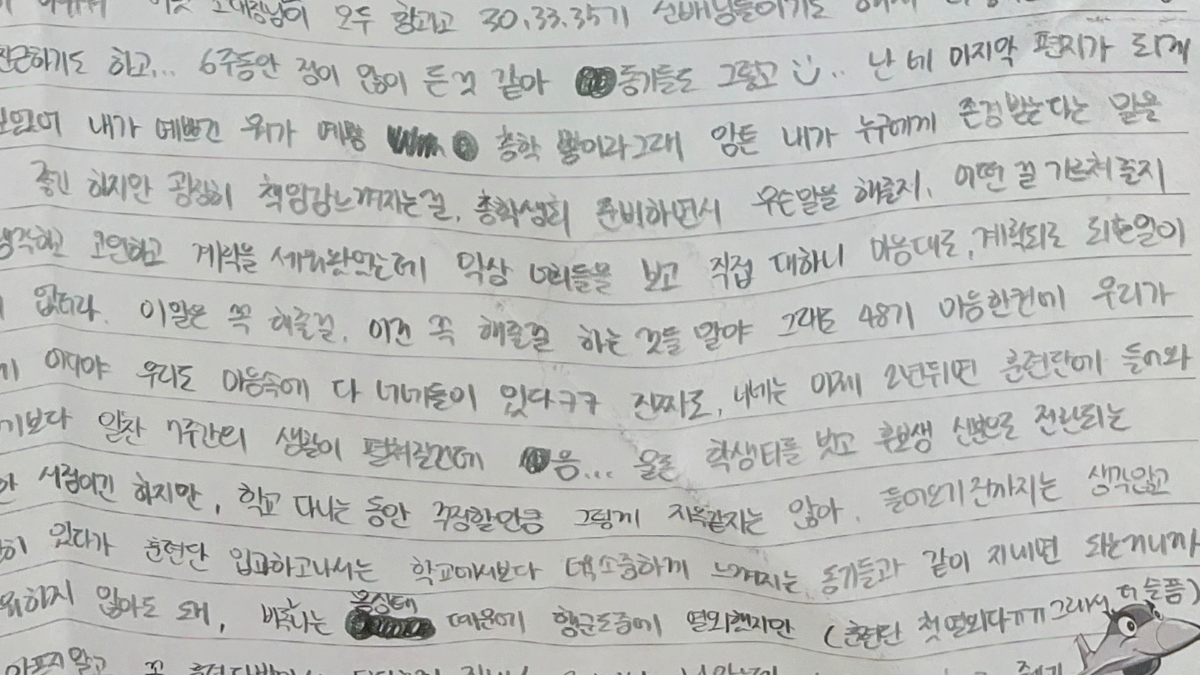 모두 할라고 30, 33, 35기 선배님들이기도
하고... 6주동안 정이 많이 든 것 같아 동기들도 그렇고 난 네 마지막 편지가 되게
내가 예쁘긴 뭐가 예뻐 총학 빨이라그래 암튼 내가 누구에게 존경받는다는 말을
좋긴 하지만 굉장히 책임감느껴지는걸, 총학생회 준비하면서 무슨말을 해줄지, 어떤 걸 가르쳐줄지
생각하고 고민하고 계획을 세워놨었는데 막상 너희들을 보고 직접 대하니 마음대로, 계획되로 되는일이
없더라. 이말은 꼭 해줄걸, 이건 꼭 해줄걸 하는 것들 말야 그래도 48기 마음한켠에 우리가
이다야 우리도 마음속에 다 너네들이 있다ㅋㅋ 진짜로, 너네는 이제 2년뒤면 훈련단에 들어와
기보다 알찬 7주간의 생활이 펼쳐질건데 음... 물론 학생티를 벗고 후보생 신분으로 전환되는
시점이긴 하지만, 학교 다니는 동안 걱정할만큼 그렇게 지옥같지는 않아. 들어오기 전까지는 생각않고
있다가 훈련단 입과하고나서는 학교에서보다 더욱소중하게 느껴지는 동기들과 같이 지내면 되는거니까
뭐하지 않아도 돼, 비록나는 몸상태 때문에 행군도중에 열외했지만 (훈련단 첫 열외다ㅠㅠ 그래서 더 슬픔)
아프지 말고 꼭